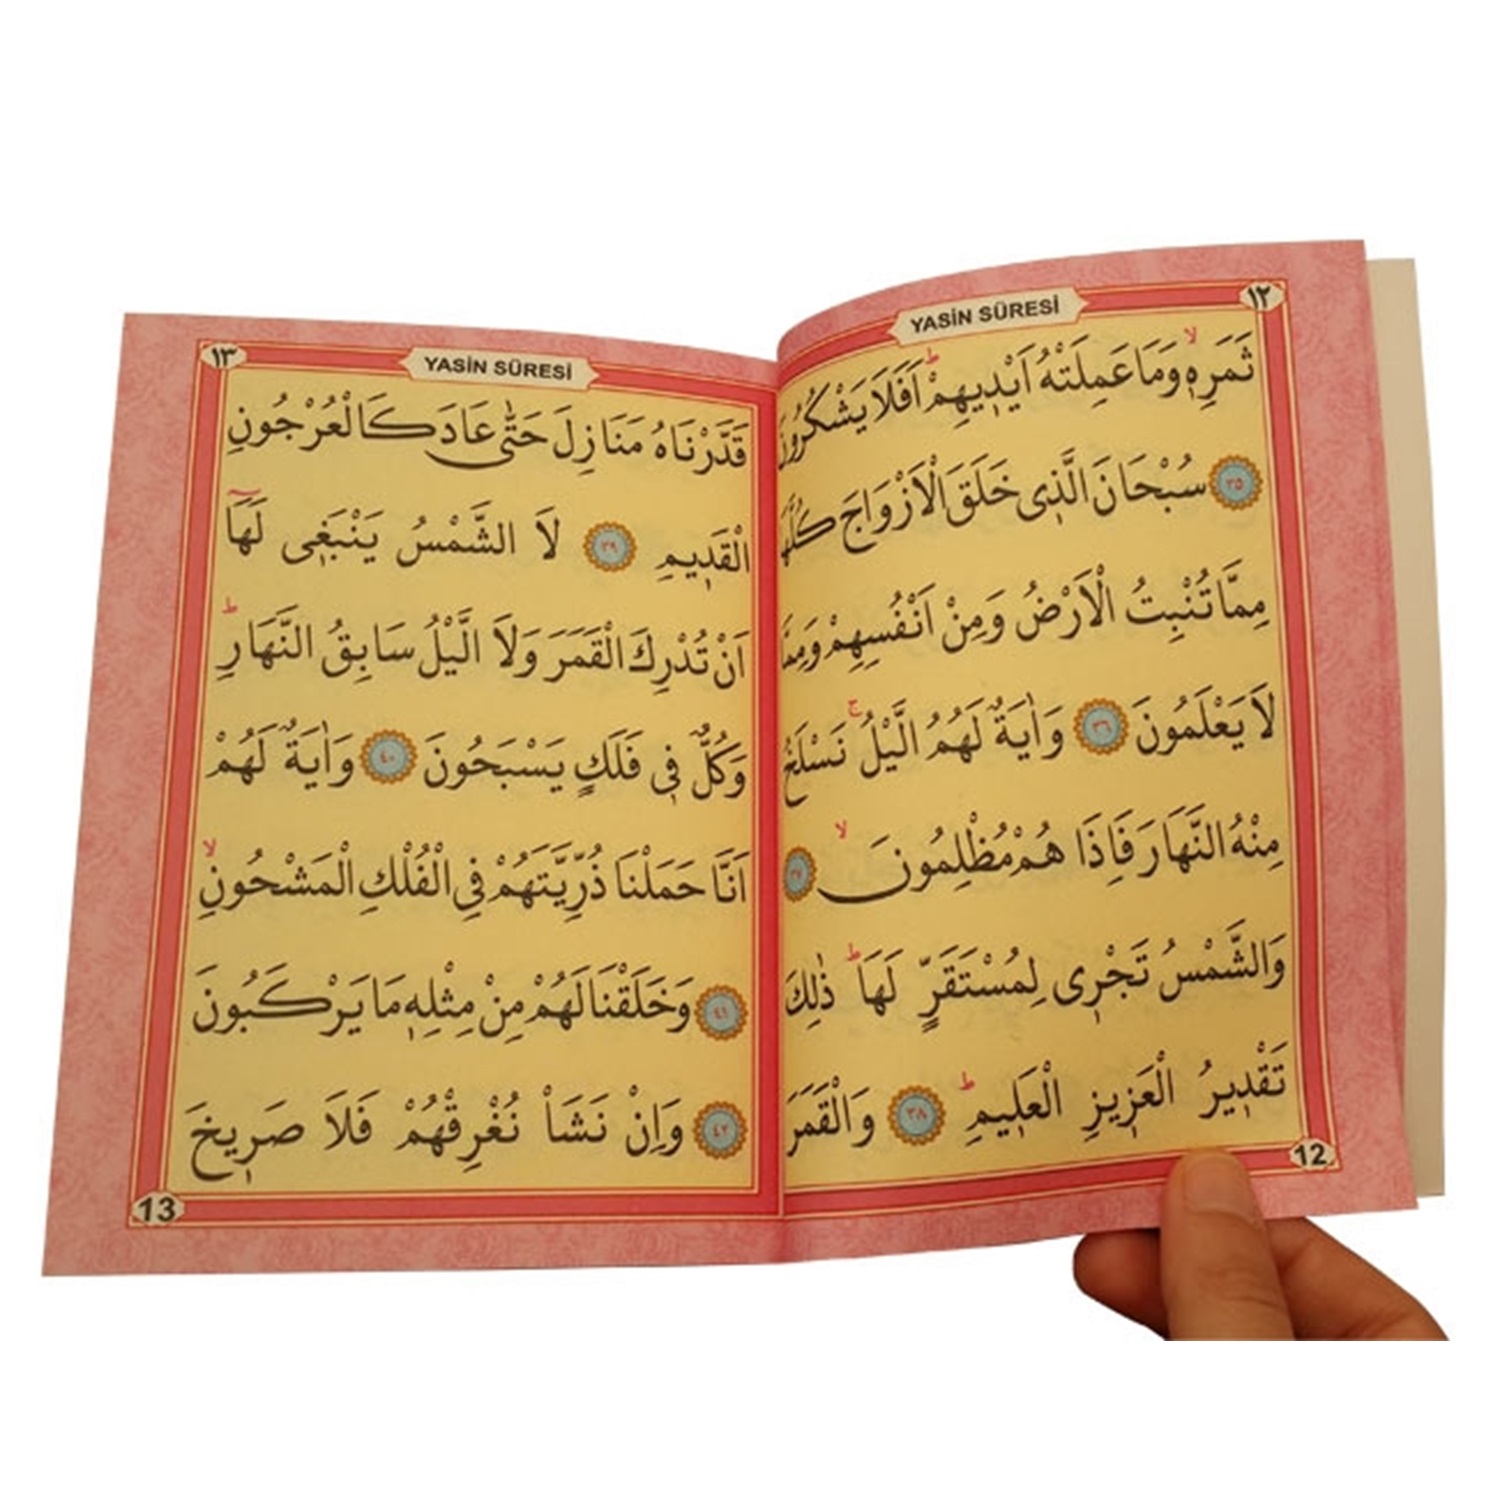 ١٢
YASİN SÛRESİ
ثَمَرِهٖۙ وَمَا عَمِلَتْهُ اَيْدٖيهِمْۜ اَفَلَا يَشْكُرُونَ
﴿٣٥﴾ سُبْحَانَ الَّذٖى خَلَقَ الْاَزْوَاجَ كُلَّهَا
مِمَّا تُنْبِتُ الْاَرْضُ وَمِنْ اَنْفُسِهِمْ وَمِمَّا
لَا يَعْلَمُونَ ﴿٣٦﴾ وَاٰيَةٌ لَهُمُ الَّيْلُۚ نَسْلَخُ
مِنْهُ النَّهَارَ فَاِذَا هُمْ مُظْلِمُونَۙ ﴿٣٧﴾
وَالشَّمْسُ تَجْرٖى لِمُسْتَقَرٍّ لَهَاۜ ذٰلِكَ
تَقْدٖيرُ الْعَزٖيزِ الْعَلٖيمِۜ ﴿٣٨﴾ وَالْقَمَرَ
12
١٣
YASİN SÛRESİ
قَدَّرْنَاهُ مَنَازِلَ حَتّٰى عَادَ كَالْعُرْجُونِ
الْقَدٖيمِ ﴿٣٩﴾ لَا الشَّمْسُ يَنْبَغٖى لَهَٓا
اَنْ تُدْرِكَ الْقَمَرَ وَلَا الَّيْلُ سَابِقُ النَّهَارِۜ
وَكُلٌّ فٖى فَلَكٍ يَسْبَحُونَ ﴿٤٠﴾ وَاٰيَةٌ لَهُمْ
اَنَّا حَمَلْنَا ذُرِّيَّتَهُمْ فِى الْفُلْكِ الْمَشْحُونِۙ
﴿٤١﴾ وَخَلَقْنَا لَهُمْ مِنْ مِثْلِهٖ مَا يَرْكَبُونَ
﴿٤٢﴾ وَاِنْ نَشَأْ نُغْرِقْهُمْ فَلَا صَرٖيخَ
13